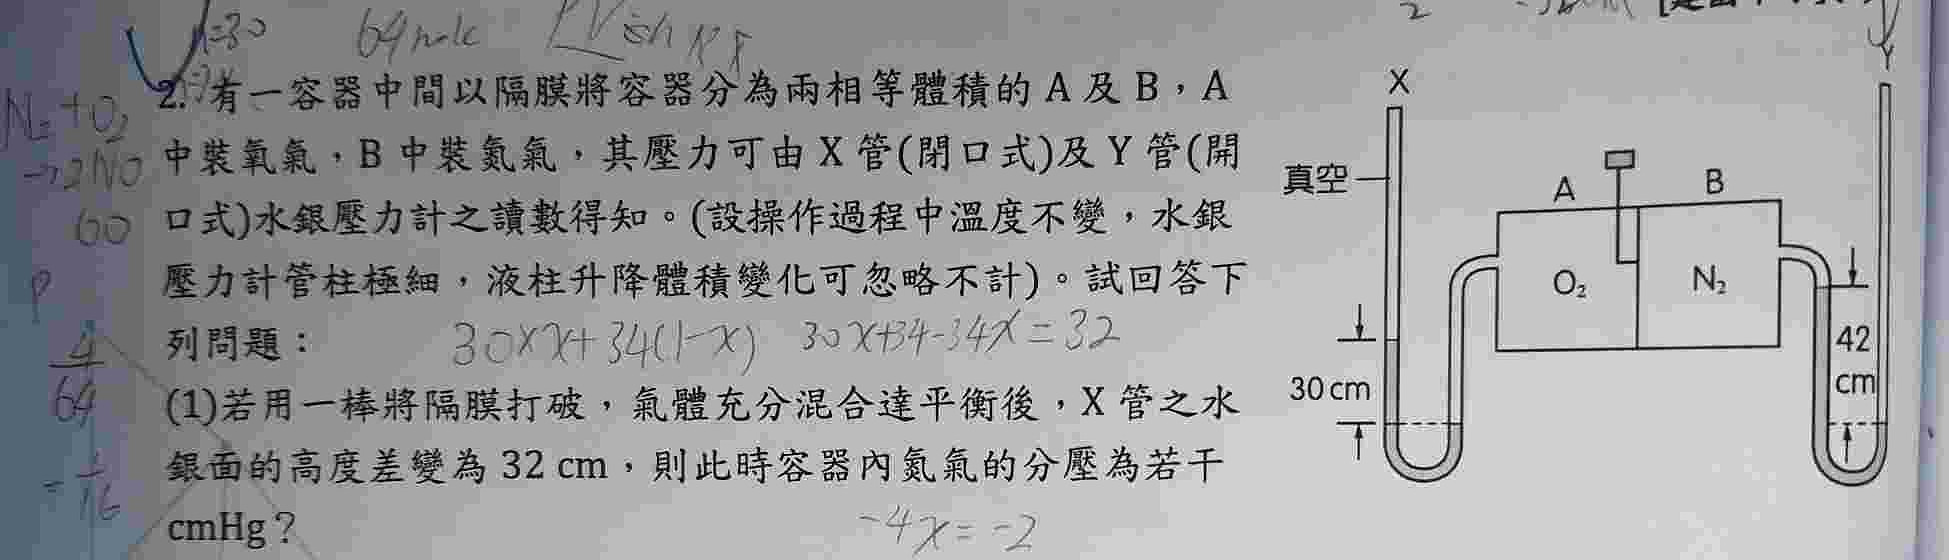 64
2. 有一容器中間以隔膜將容器分為兩相等體積的 A 及 B，A
中裝氧氣，B 中裝氮氣，其壓力可由 X 管(閉口式)及 Y 管(開
口式)水銀壓力計之讀數得知。(設操作過程中溫度不變，水銀
壓力計管柱極細，液柱升降體積變化可忽略不計)。試回答下
列問題：
30×x+34(1-x) 30x+34-34x=32
(1)若用一棒將隔膜打破，氣體充分混合達平衡後，X 管之水
銀面的高度差變為 32 cm，則此時容器內氮氣的分壓為若干
cmHg？
-4x=-2
N₂+O₂
→2NO
60
P
4
64
=1/16
2
X
Y
真空
A
B
O₂
N₂
30 cm
42
cm